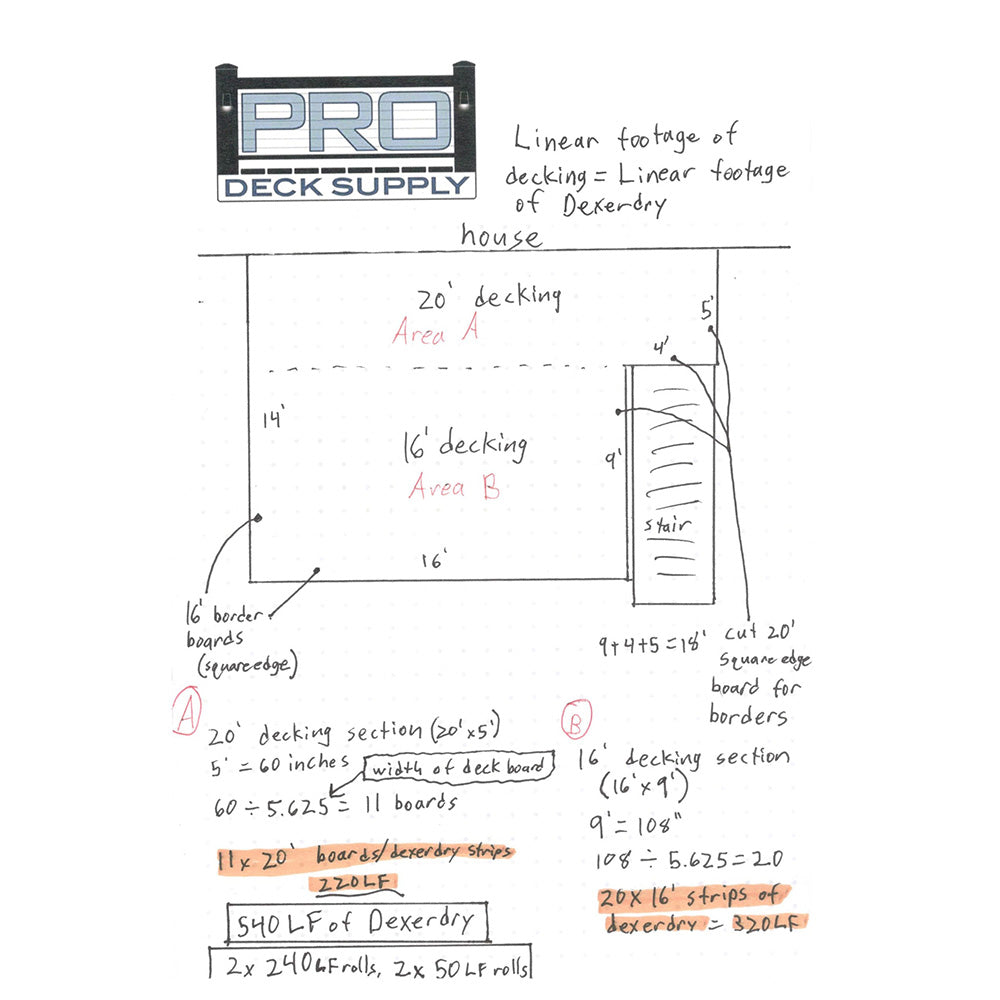 PRO
DECK SUPPLY
Linear footage of
decking = Linear footage
of Dexerdry
house
20' decking
Area A
5'
4'
14'
16' decking
Area B
9'
stair
16'
16' border
boards
(square edge)
9+4+5=18'
cut 20'
square edge
board for
borders
A
20' decking section (20'x5')
5' = 60 inches
width of deck board
60 ÷ 5.625 = 11 boards
11 x 20' boards/dexerdry strips
220LF
540 LF of Dexerdry
2x 240LF rolls, 2x 50LF rolls
B
16' decking section
(16' x 9')
9' = 108"
108 ÷ 5.625 = 20
20 x 16' strips of
dexerdry = 320LF